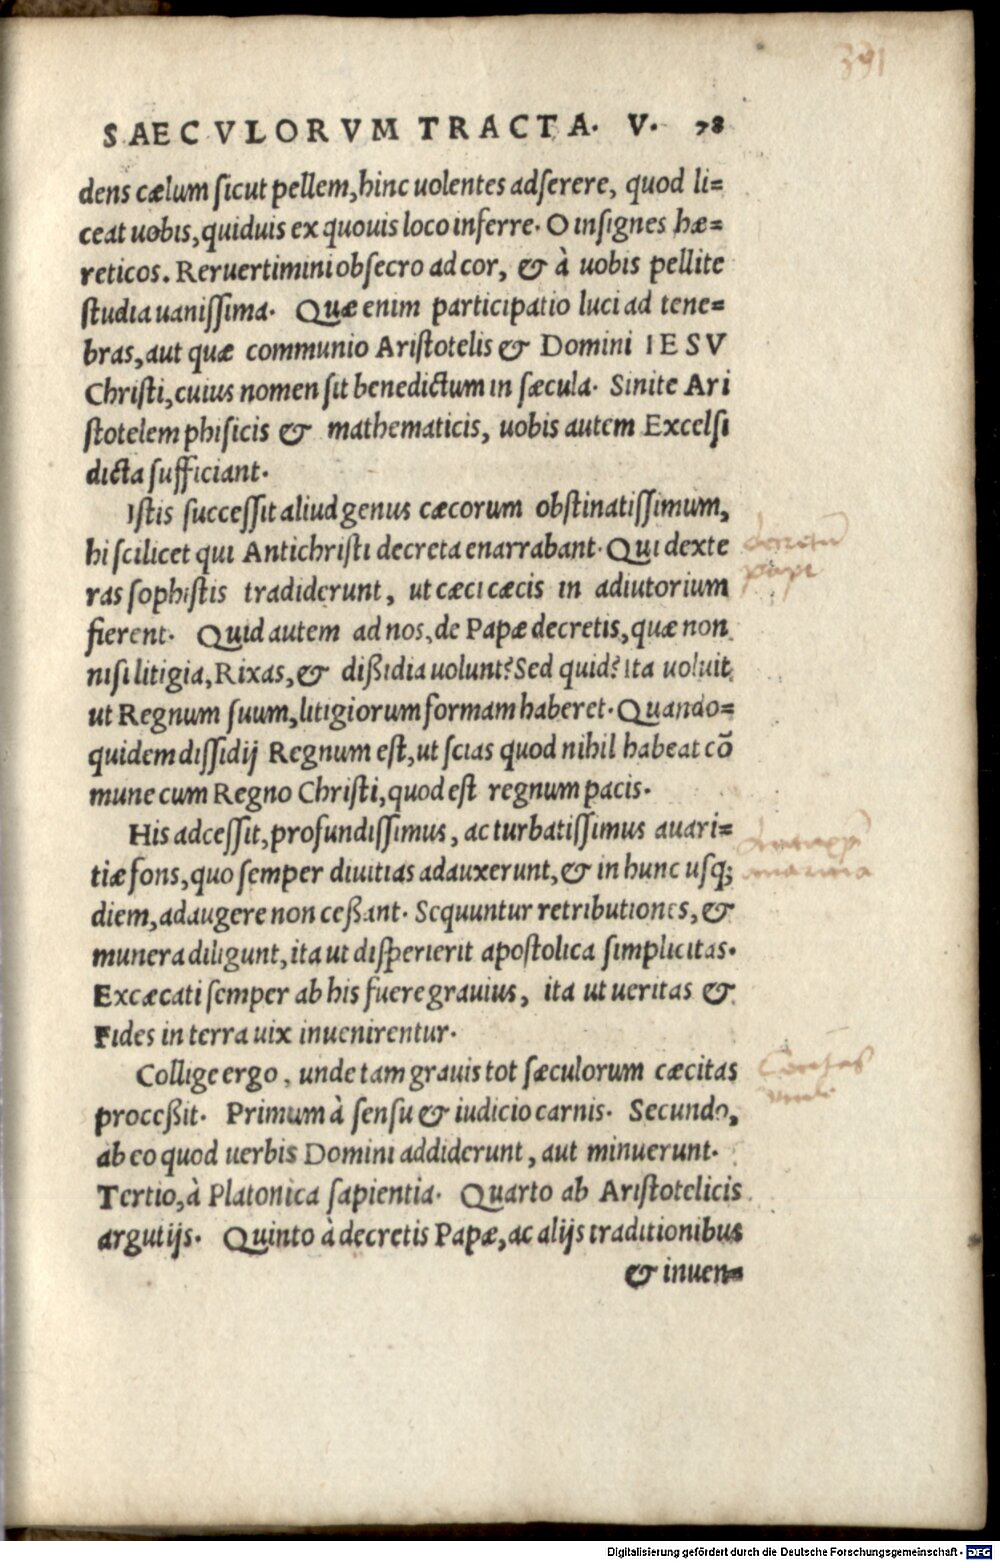 391
SAECVLORVM TRACTA. V. 78
dens cælum sicut pellem, hinc uolentes adserere, quod li=
ceat uobis, quiduis ex quouis loco inferre. O insignes hæ=
reticos. Reruertimini obsecro ad cor, & à uobis pellite
studia uanissima. Quæ enim participatio luci ad tene=
bras, aut quæ communio Aristotelis & Domini IESV
Christi, cuius nomen sit benedictum in sæcula. Sinite Ari
stotelem phisicis & mathematicis, uobis autem Excelsi
dicta sufficiant.
Istis successit aliud genus cæcorum obstinatissimum,
hi scilicet qui Antichristi decreta enarrabant. Qui dexte
ras sophistis tradiderunt, ut cæci cæcis in adiutorium
fierent. Quid autem ad nos, de Papæ decretis, quæ non
nisi litigia, Rixas, & dißidia uolunt? Sed quid? ita uoluit
ut Regnum suum, litigiorum formam haberet. Quando=
quidem dissidij Regnum est, ut scias quod nihil habeat cō
mune cum Regno Christi, quod est regnum pacis.
His adcessit, profundissimus, ac turbatissimus auari=
tiæ fons, quo semper diuitias adauxerunt, & in hunc usq;
diem, adaugere non ceßant. Sequuntur retributiones, &
munera diligunt, ita ut disperierit apostolica simplicitas.
Excæcati semper ab his fuere grauius, ita ut ueritas &
Fides in terra uix inuenirentur.
Collige ergo, unde tam grauis tot sæculorum cæcitas
proceßit. Primum à sensu & iudicio carnis. Secundo,
ab eo quod uerbis Domini addiderunt, aut minuerunt.
Tertio, à Platonica sapientia. Quarto ab Aristotelicis
argutijs. Quinto à decretis Papæ, ac alijs traditionibus
& inuen=
Digitalisierung gefördert durch die Deutsche Forschungsgemeinschaft - DFG